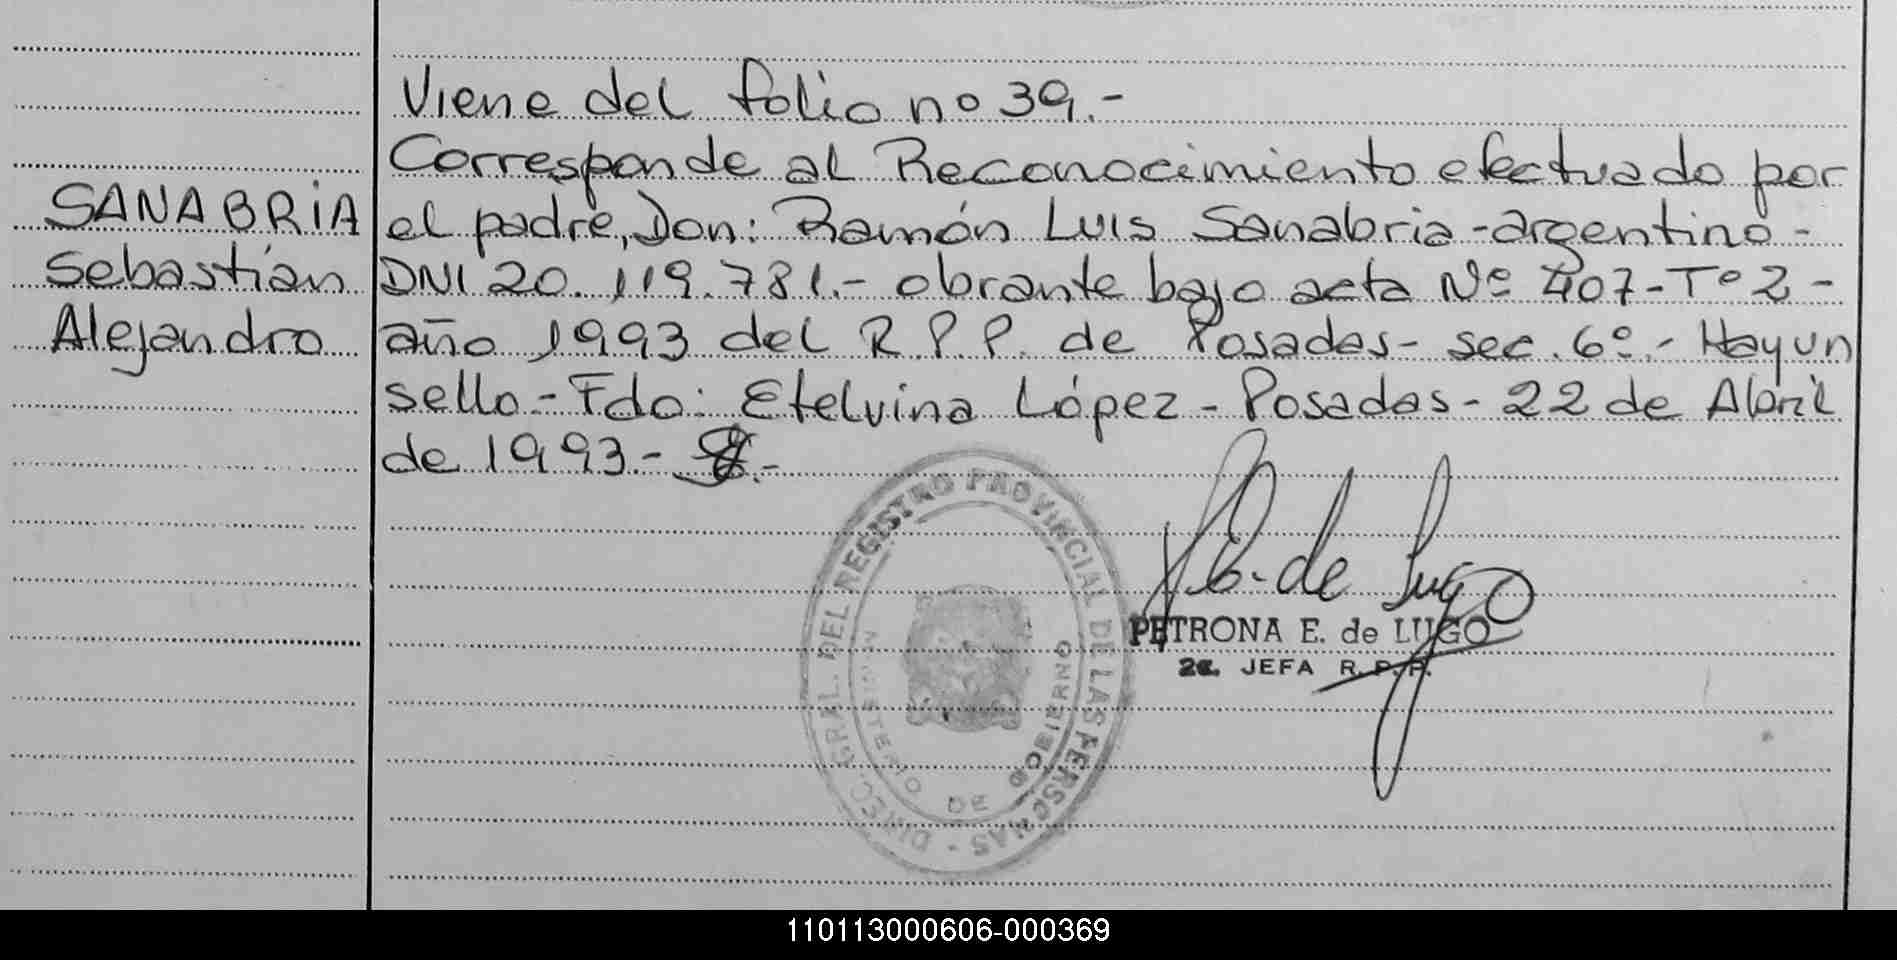 Viene del folio nº 39.-
Corresponde al Reconocimiento efectuado por
SANABRIA
el padre, Don: Ramón Luis Sanabria - argentino -
Sebastián
DNI 20.119.781.- obrante bajo acta Nº 407 - Tº 2 -
Alejandro
año 1993 del R.P.P. de Posadas - sec. 6º.- Hay un
sello.- Fdo: Etelvina López - Posadas - 22 de Abril
de 1993 -
DIREC. GRAL. DEL REGISTRO PROVINCIAL DE LAS PERSONAS -
MINISTERIO DE GOBIERNO
E. de Lugo
PETRONA E. de LUGO
2a. JEFA R.P.P.
110113000606-000369